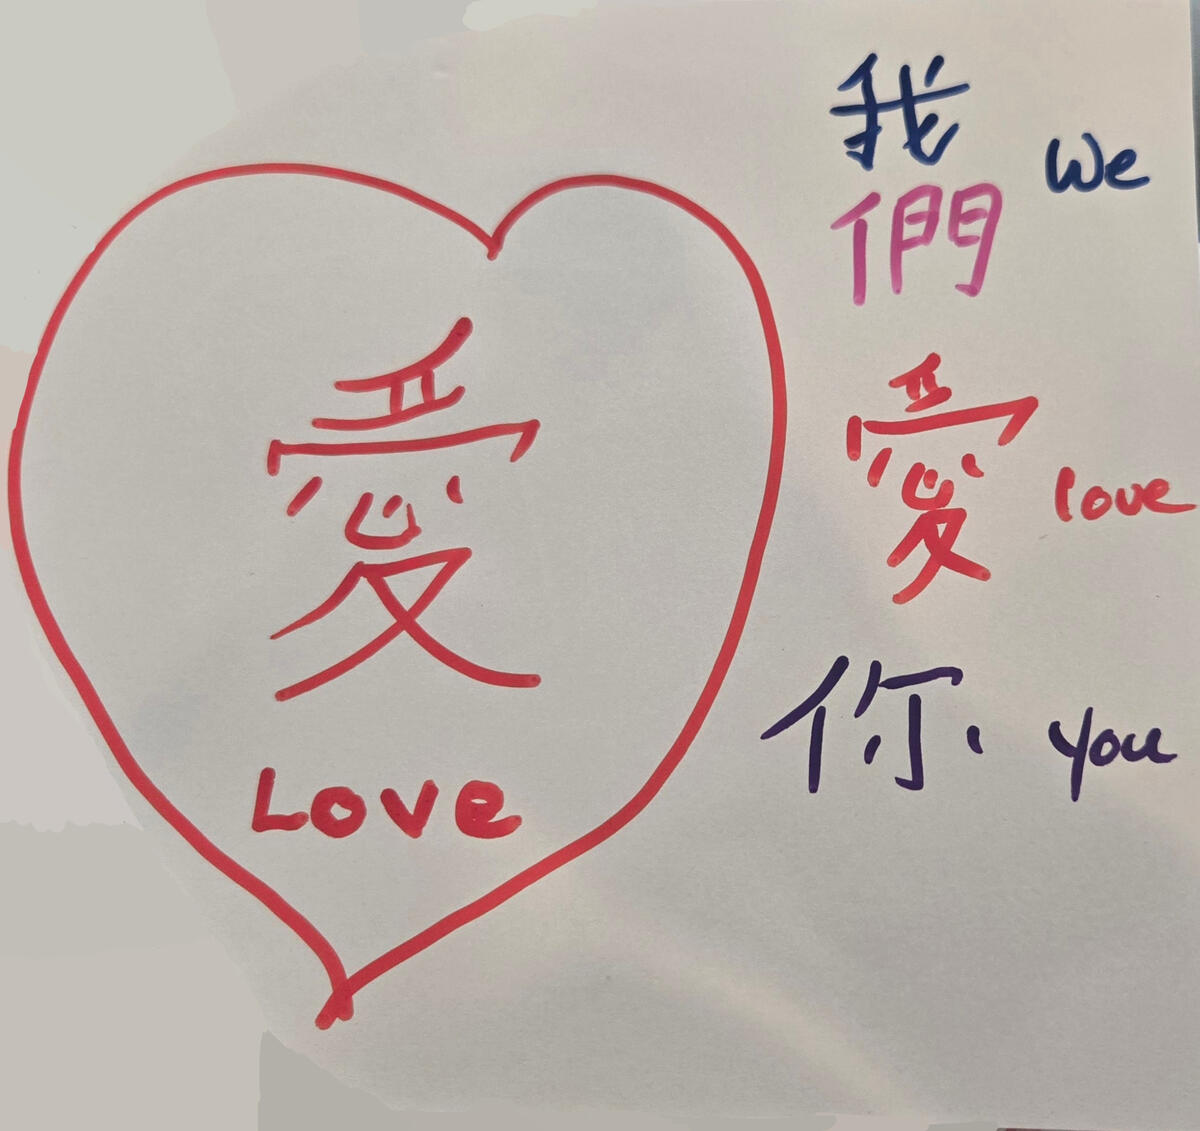 愛
Love
我 We
們
愛 love
你 you